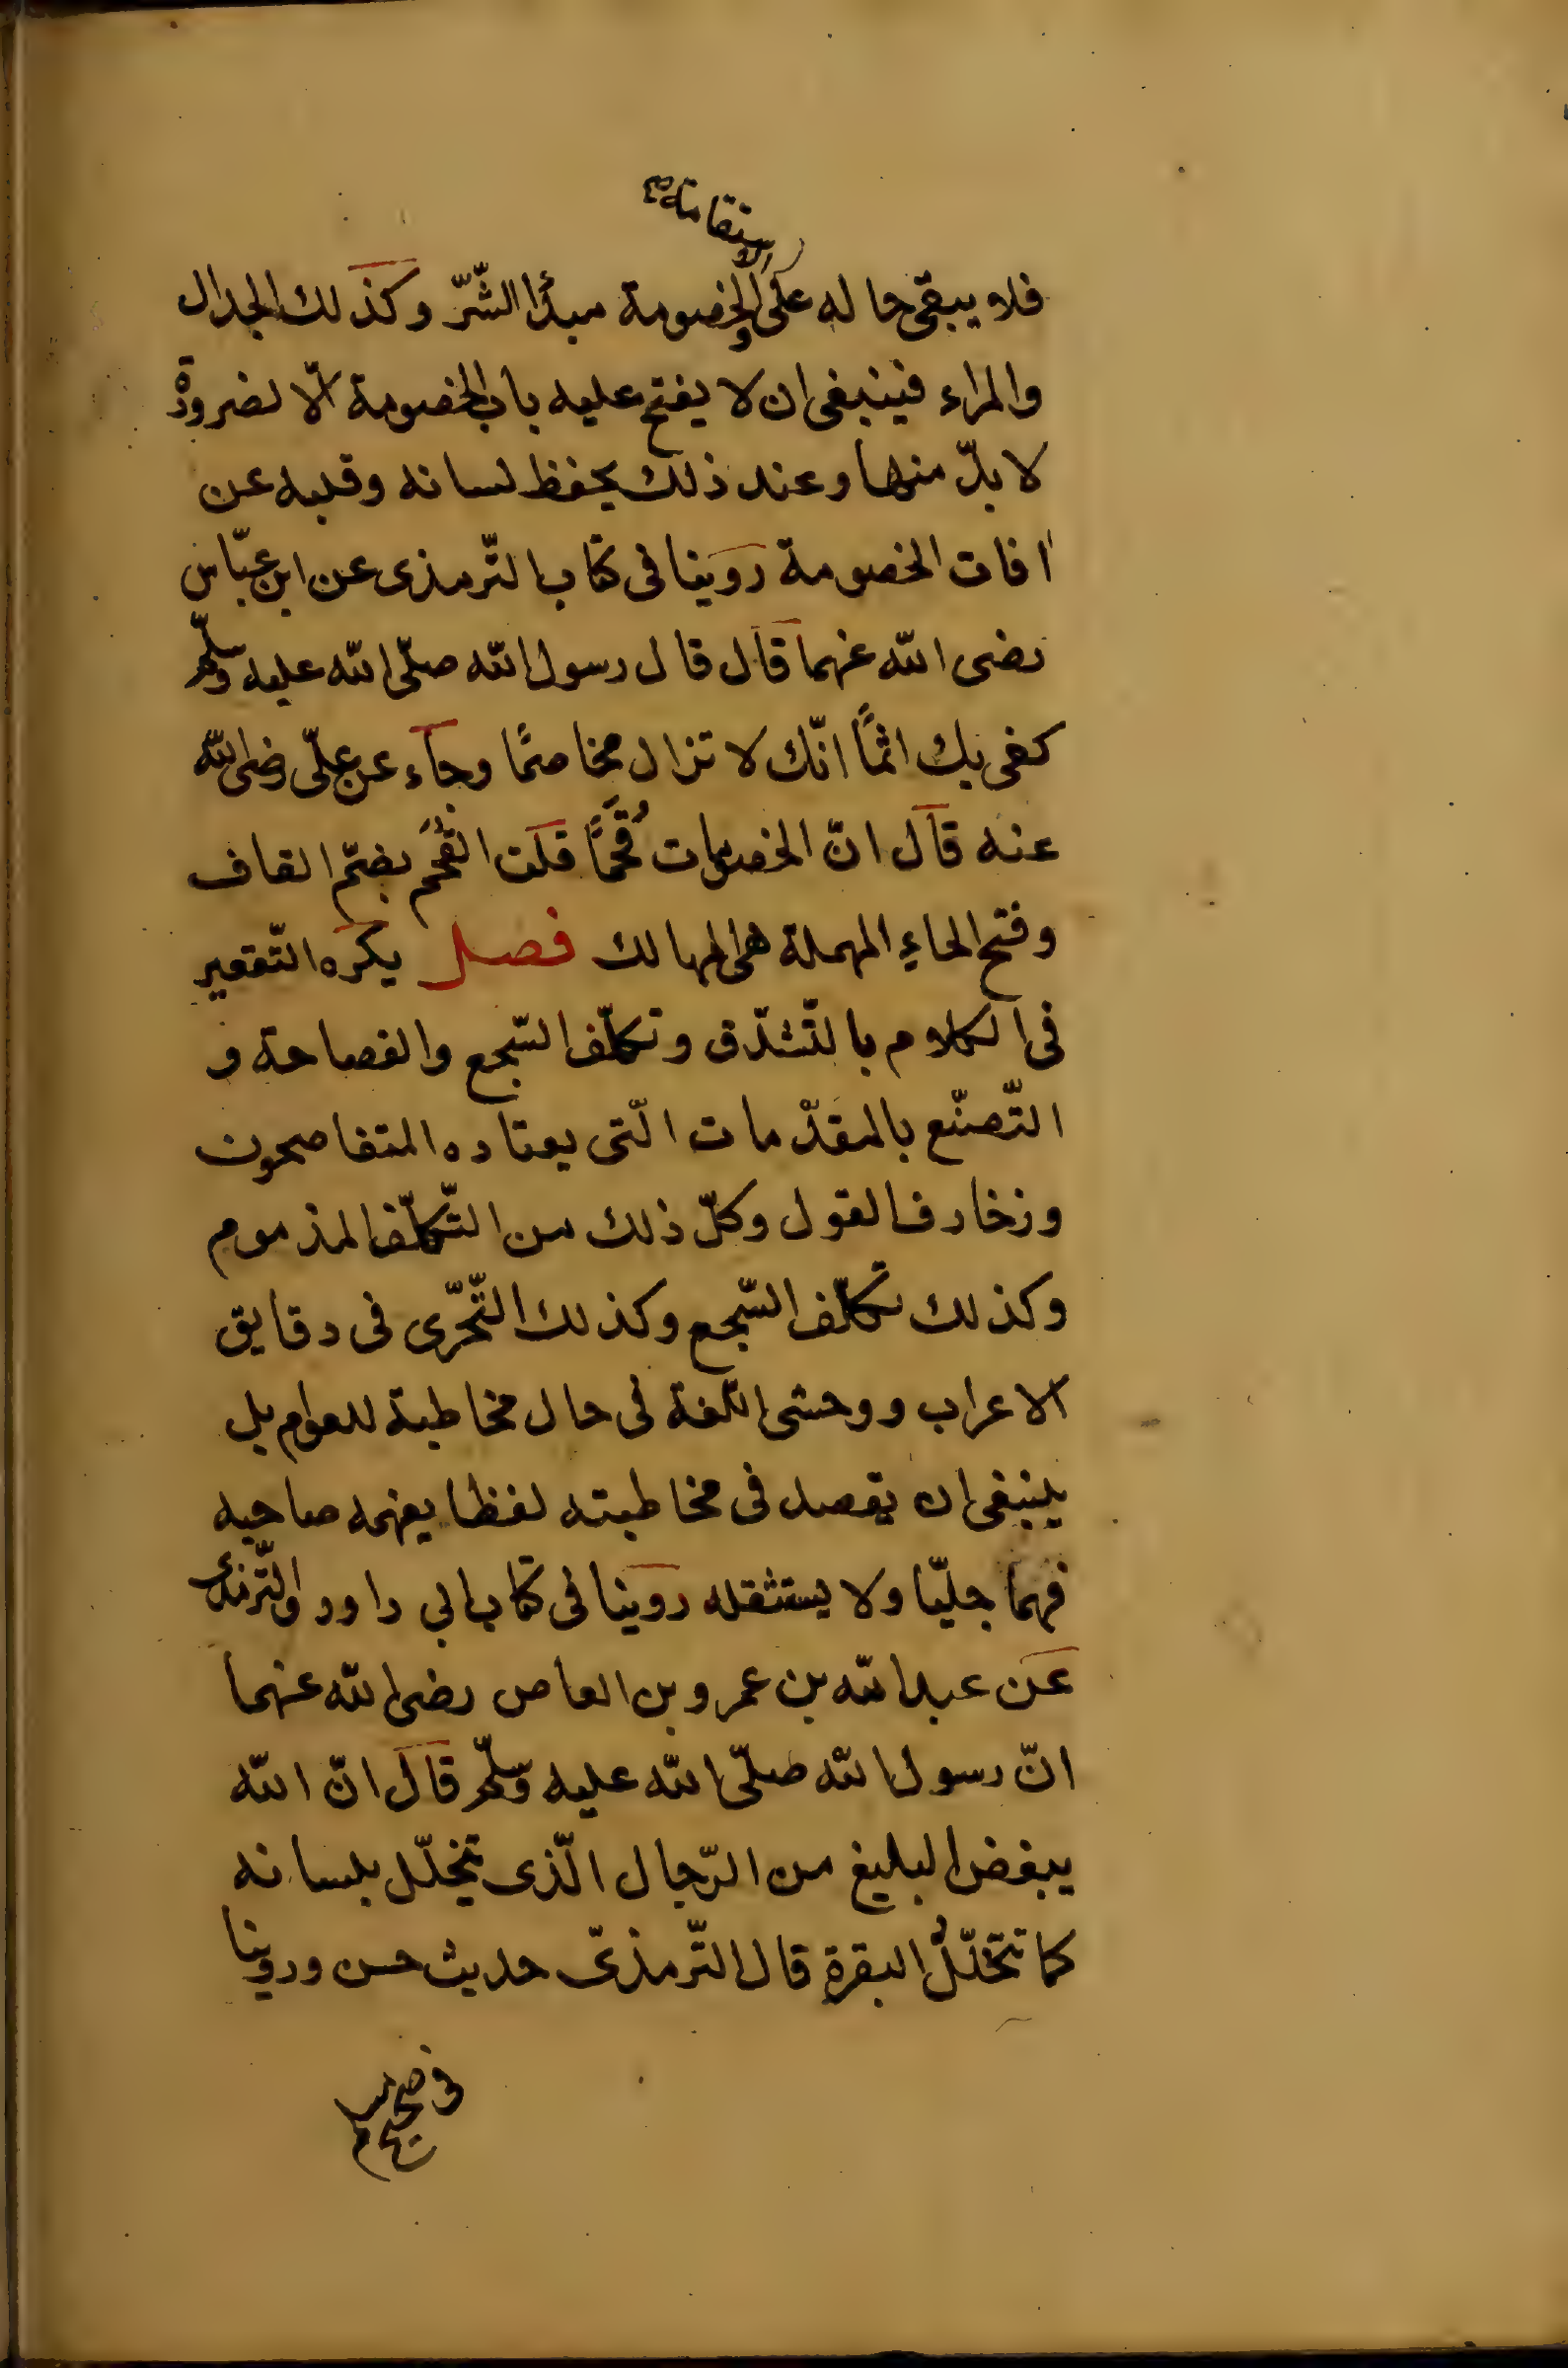 الاستقامة صح
فلا يبقى حاله على والخصومة مبدأ الشّرّ وكذلك الجدال
والمراء فينبغى ان لا يفتح عليه باب الخصومة الّا لضرورة
لا بدّ منها وعند ذلك يحفظ لسانه وقلبه عن
افات الخصومة روينا فى كتاب التّرمذى عن ابن عبّاس
رضى الله عنهما قال قال رسول الله صلّى الله عليه وسلّم
كفى بك اثمًا انّك لا تزال مخاصمًا وجاء عن علّى رضى الله
عنه قال انّ الخصومات قُحَمًا قلت القُحَم بضمّ القاف
وفتح الحاءِ المهملة هى المهالك فصل يكره التّقعير
فى الكلام بالتّشدّق وتكلّف السّجع والفصاحة و
التّصنّع بالمقدّمات الّتى يعتاده المتفاصحون
وزخارف القول وكلّ ذلك من التّكلّف المذموم
وكذلك تكلّف السّجع وكذلك التّحرّى فى دقايق
الاعراب ووحشى اللّغة فى حال مخاطبة للعوام بل
ينبغى ان يقصد فى مخاطبته لفظا يفهمه صاحبه
فهما جليّا ولا يستثقله روينا فى كتاب ابى داود والتّرمذى
عن عبد الله بن عمرو بن العاص رضى الله عنهما
انّ رسول الله صلّى الله عليه وسلّم قال انّ الله
يبغض البليغ من الرّجال الّذى يتخلّل بلسانه
كما تتخلّلُ البقرة قال التّرمذىّ حديث حسن وروينا
فى صحيح